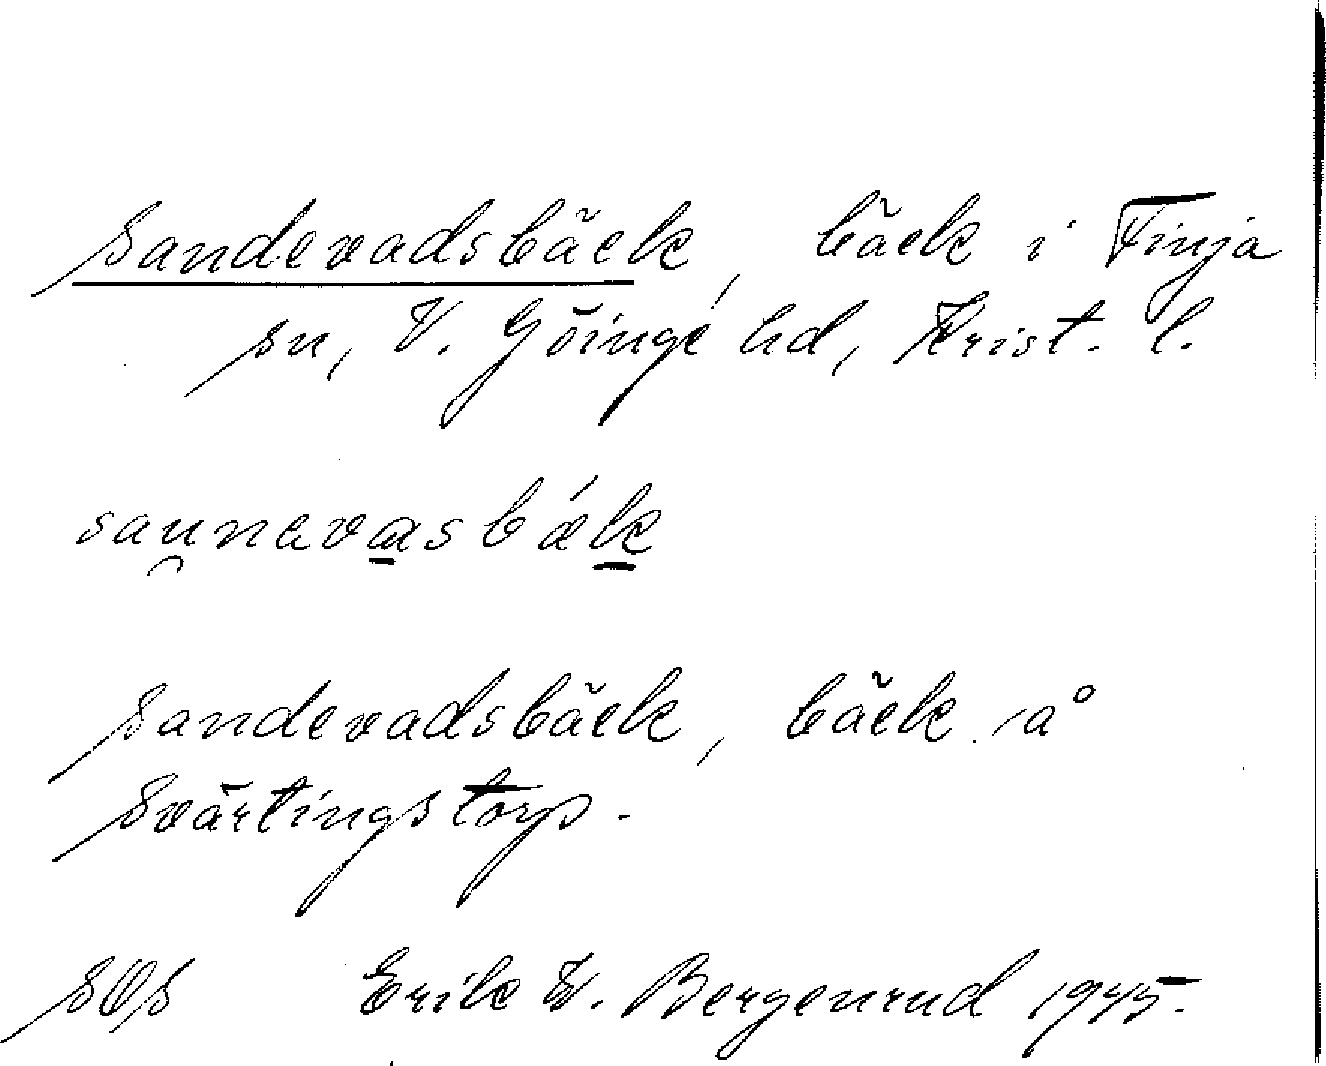 Sandevadsbäck, bäck i Finja
sn, V. Göinge hd, Krist. l.
sau̯nevas̱bǽk
Sandevadsbäck, bäck å
Svärtingstorp.
SOS Erik W. Bergenrud 1945.